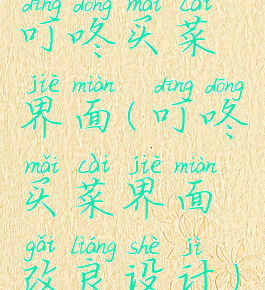 dīng dōng mǎi cài
叮咚买菜
jiè miàn dīng dōng
界面(叮咚
mǎi cài jiè miàn
买菜界面
gǎi liáng shè jì
改良设计)